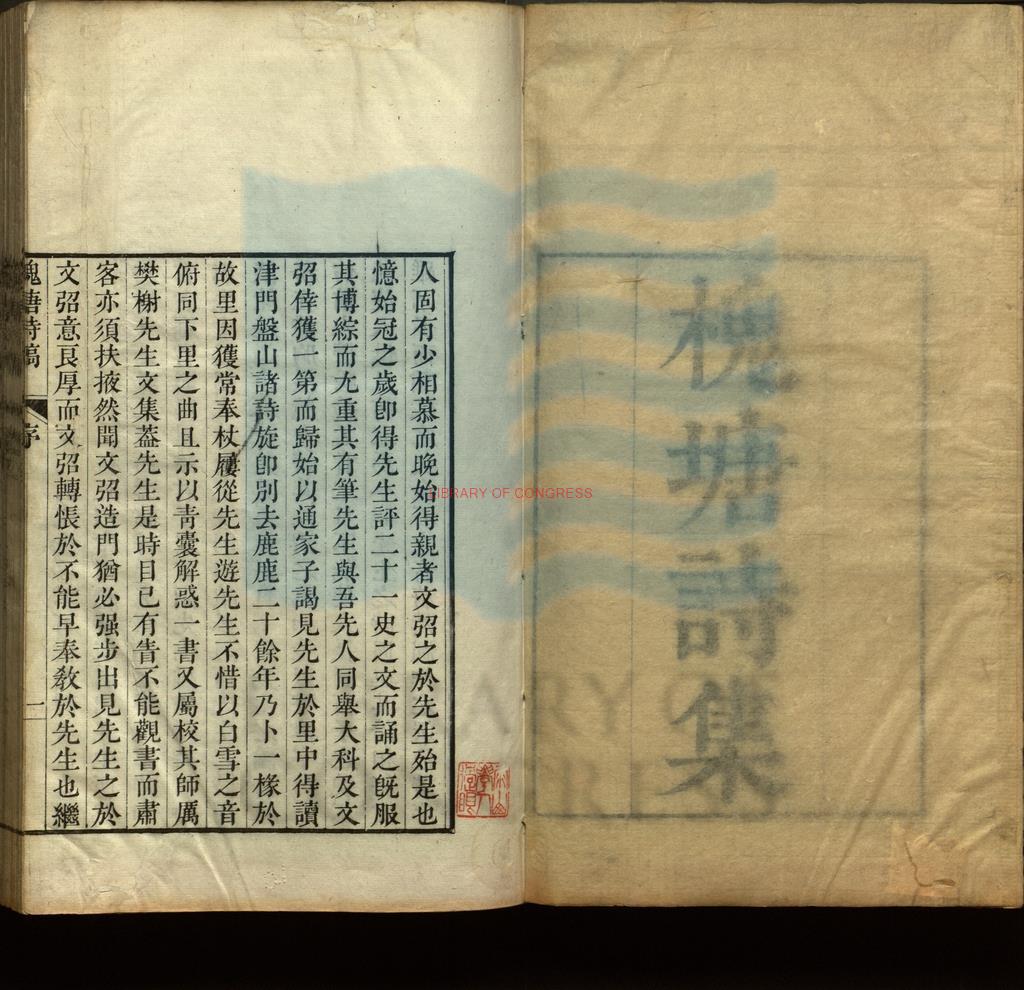 槐塘詩集
人固有少相慕而晚始得親者文弨之於先生殆是也
憶始冠之歲卽得先生評二十一史之文而誦之旣服
其博綜而尤重其有筆先生與吾先人同舉大科及文
弨倖獲一第而歸始以通家子謁見先生於里中得讀
津門盤山諸詩旋卽別去鹿鹿二十餘年乃卜一椽於
故里因獲常奉杖屨從先生遊先生不惜以白雪之音
俯同下里之曲且示以靑囊解惑一書又屬校其師厲
樊榭先生文集葢先生是時目已有眚不能觀書而肅
客亦須扶掖然聞文弨造門猶必强步出見先生之於
文弨意良厚而文弨轉悵於不能早奉敎於先生也繼
槐塘詩稿 序 一
LIBRARY OF CONGRESS